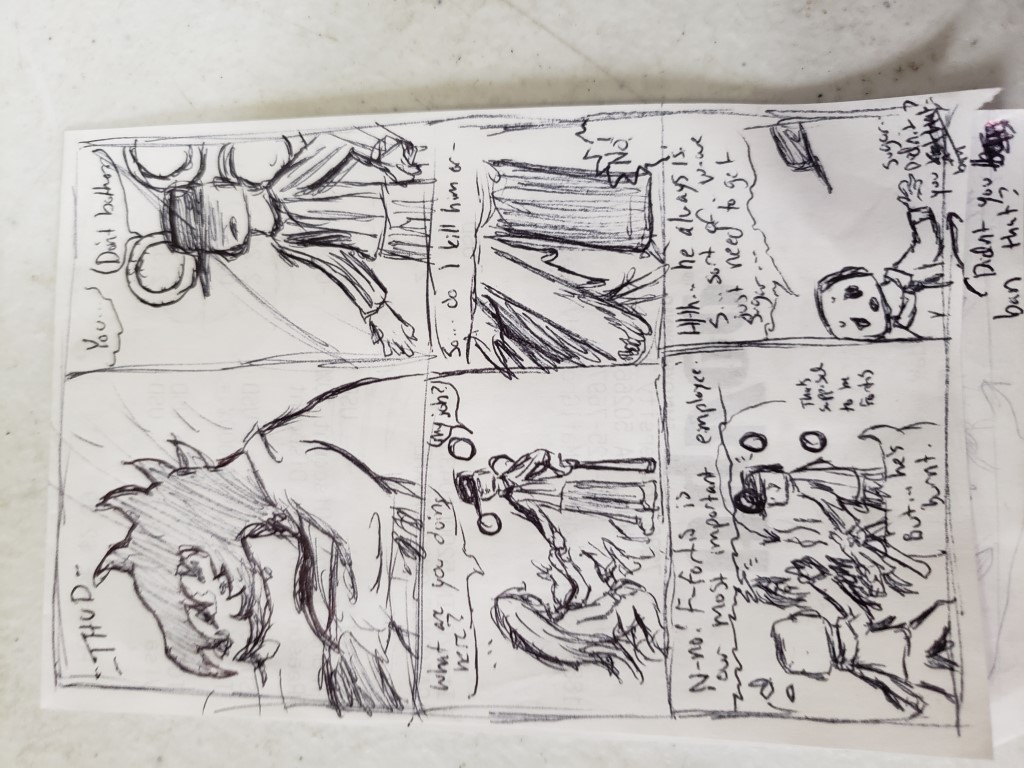 -THUD-
You...
Don't bother
What are you doing
here?
...
My job?
So... do I kill him or-
NO
N-no! F-Fortis is
our most important employee!
Thats
supposed
to be
Fortis
But... he's
burnt.
HHh... he always is
S... sort of w-we
just need to get
sugar...
sugar...
Didn't
you
ban
Didnt you
ban that?